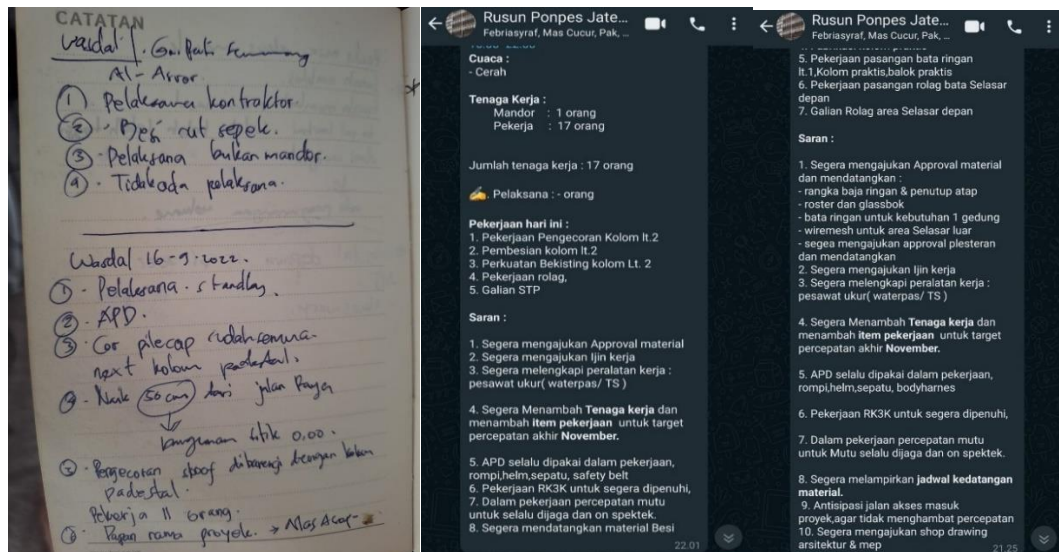 CATATAN
Wasdal 1. Gn. Pati Semarang
Al - Asror
① Pelaksana kontraktor
② . Besi sepek.
③ . Pelaksana bukan mandor.
④ . Tidak ada pelaksana.
Wasdal 16-9-2022.
① . Pelaksana. standby.
② . APD.
③ . Cor pilecap sudah semua.
next kolom padestal.
④ . Naik 50 cm dari jalan Raya
bangunan titik 0.00.
⑤ . Pengecoran sloof dibarengi dengan kolom
padestal.
Pekerja 11 orang.
⑥ . Papan nama proyek. → Mas
Rusun Ponpes Jate...
Febriasyraf, Mas Cucur, Pak, ...
Cuaca :
- Cerah
Tenaga Kerja :
Mandor : 1 orang
Pekerja : 17 orang
Jumlah tenaga kerja : 17 orang
✍️. Pelaksana : - orang
Pekerjaan hari ini :
1. Pekerjaan Pengecoran Kolom lt.2
2. Pembesian kolom lt.2
3. Perkuatan Bekisting kolom Lt. 2
4. Pekerjaan rolag,
5. Galian STP
Saran :
1. Segera mengajukan Approval material
2. Segera mengajukan Ijin kerja
3. Segera melengkapi peralatan kerja :
pesawat ukur( waterpas/ TS )
4. Segera Menambah Tenaga kerja dan
menambah item pekerjaan untuk target
percepatan akhir November.
5. APD selalu dipakai dalam pekerjaan,
rompi,helm,sepatu, safety belt
6. Pekerjaan RK3K untuk segera dipenuhi,
7. Dalam pekerjaan percepatan mutu
untuk selalu dijaga dan on spektek.
8. Segera mendatangkan material Besi
22.01
Rusun Ponpes Jate...
Febriasyraf, Mas Cucur, Pak, ...
5. Pekerjaan pasangan bata ringan
lt.1,Kolom praktis,balok praktis
6. Pekerjaan pasangan rolag bata Selasar
depan
7. Galian Rolag area Selasar depan
Saran :
1. Segera mengajukan Approval material
dan mendatangkan :
- rangka baja ringan & penutup atap
- roster dan glassbok
- bata ringan untuk kebutuhan 1 gedung
- wiremesh untuk area Selasar luar
- segea mengajukan approval plesteran
dan mendatangkan
2. Segera mengajukan Ijin kerja
3. Segera melengkapi peralatan kerja :
pesawat ukur( waterpas/ TS )
4. Segera Menambah Tenaga kerja dan
menambah item pekerjaan untuk target
percepatan akhir November.
5. APD selalu dipakai dalam pekerjaan,
rompi,helm,sepatu, bodyharnes
6. Pekerjaan RK3K untuk segera dipenuhi,
7. Dalam pekerjaan percepatan mutu
untuk Mutu selalu dijaga dan on spektek.
8. Segera melampirkan jadwal kedatangan
material.
9. Antisipasi jalan akses masuk
proyek,agar tidak menghambat percepatan
10. Segera mengajukan shop drawing
arsitektur & mep
21.25